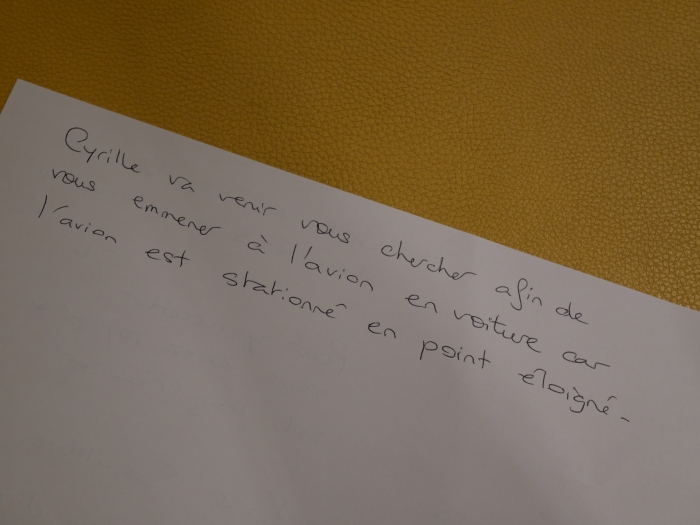 Cyrille va venir vous chercher afin de
vous emmener à l'avion en voiture car
l'avion est stationné en point éloigné.